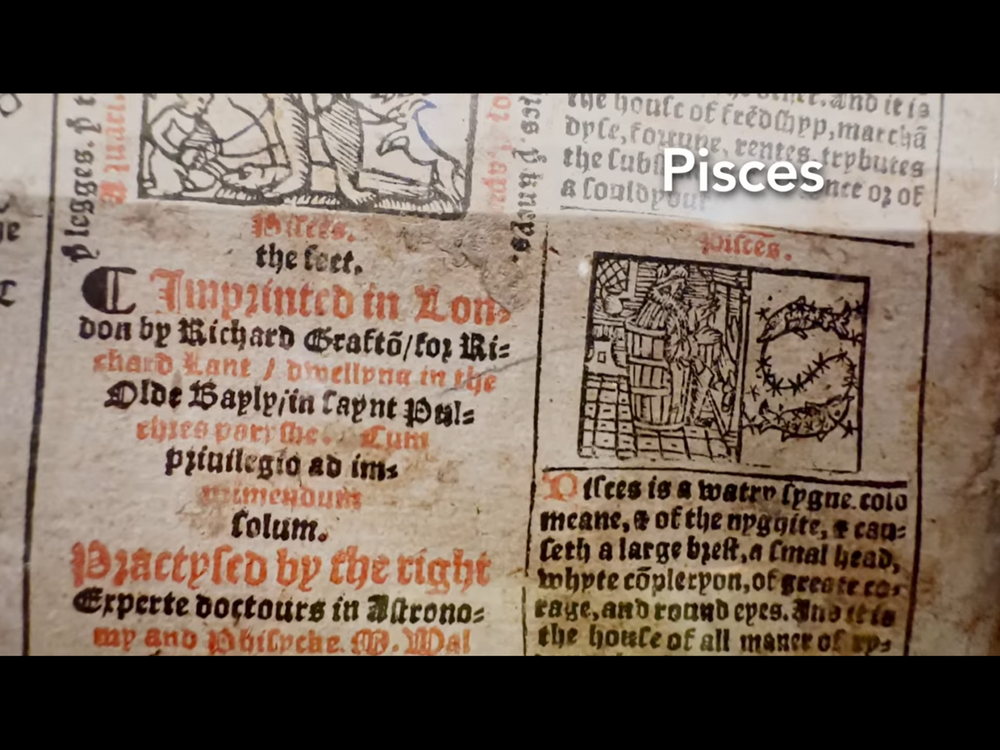 Pisces
Pisces.
the feet.
Imprinted in Lon⸗
don by Richard Graftõ/for Ri⸗
chard Lant / dwellyng in the
Olde Bayly/in saynt Pul⸗
chres paryshe. Cum
priuilegio ad im⸗
primendum
solum.
Practysed by the right
Experte doctours in Astrono⸗
my and Phisycke. M. Wal
the house of frẽdshyp, marchã
dyse, fortune, rentes, trybutes
the subs
a souldyour
nce or of
Pisces.
Pisces is a watry sygne. cold
meane, & of the nyghte, & cau⸗
seth a large brest, a smal head,
whyte cõplexyon, of greate co⸗
rage, and round eyes. And it is
the house of all maner of ry⸗